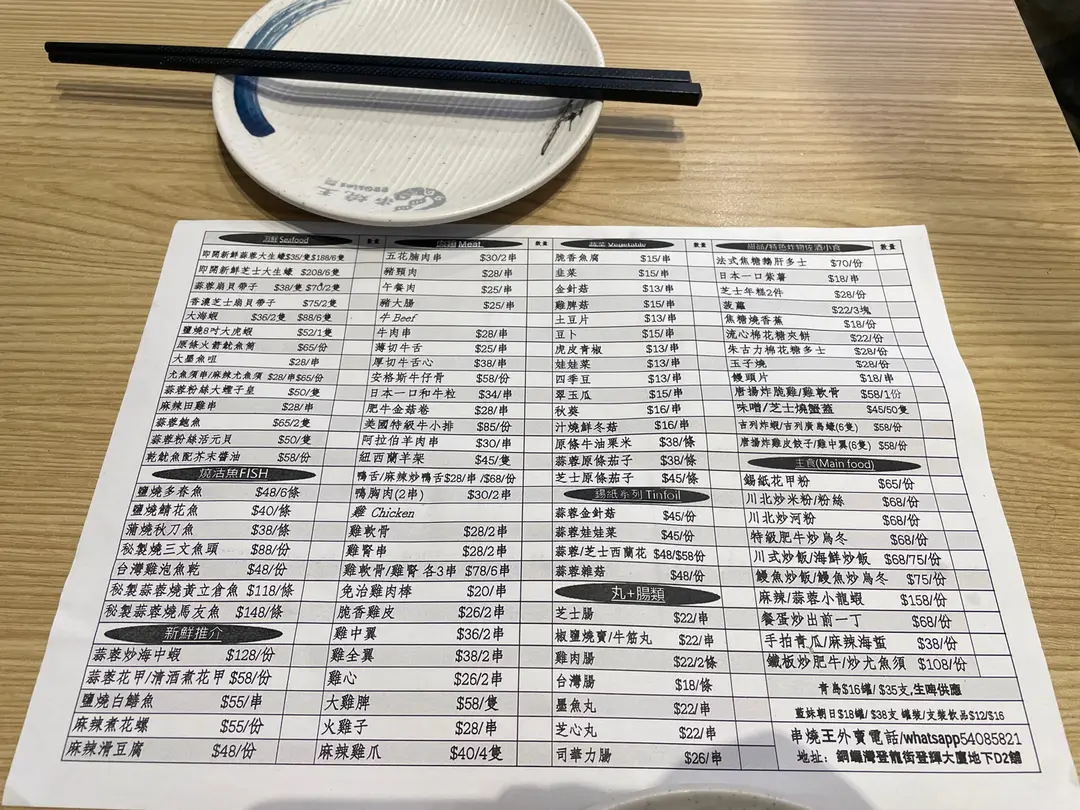 串燒王
海鮮 Seafood
數量
即開新鮮蒜蓉大生蠔$35/隻$188/6隻
即開新鮮芝士大生蠔 $208/6隻
蒜蓉扇貝帶子 $38/隻 $70/2隻
香濃芝士扇貝帶子 $75/2隻
大海蝦 $36/2隻 $88/6隻
鹽燒8吋大虎蝦 $52/1隻
原條火箭魷魚筒 $65/份
大墨魚咀 $28/串
尤魚須串/麻辣尤魚須 $28/串$65/份
蒜蓉粉絲大蟶子皇 $50/隻
麻辣田雞串 $28/串
蒜蓉鮑魚 $65/2隻
蒜蓉粉絲活元貝 $50/隻
乾魷魚配芥末醬油 $58/份
燒活魚FISH
鹽燒多春魚 $48/6條
鹽燒鯖花魚 $40/條
蒲燒秋刀魚 $38/條
秘製燒三文魚頭 $88/份
台灣雞泡魚乾 $48/份
秘製蒜蓉燒黃立倉魚 $118/條
秘製蒜蓉燒馬友魚 $148/條
新鮮推介
蒜蓉炒海中蝦 $128/份
蒜蓉花甲/清酒煮花甲 $58/份
鹽燒白鱔魚 $55/串
麻辣煮花螺 $55/份
麻辣滑豆腐 $48/份
肉類 Meat
數量
五花腩肉串 $30/2串
豬頸肉 $28/串
午餐肉 $25/串
豬大腸 $25/串
牛 Beef
牛肉串 $28/串
薄切牛舌 $25/串
厚切牛舌心 $38/串
安格斯牛仔骨 $58/份
日本一口和牛粒 $34/串
肥牛金菇卷 $28/串
美國特級牛小排 $85/份
阿拉伯羊肉串 $30/串
紐西蘭羊架 $45/隻
鴨舌/麻辣炒鴨舌$28/串 /$68/份
鴨胸肉(2串) $30/2串
雞 Chicken
雞軟骨 $28/2串
雞腎串 $28/2串
雞軟骨/雞腎 各3串 $78/6串
免治雞肉棒 $20/串
脆香雞皮 $26/2串
雞中翼 $36/2串
雞全翼 $38/2串
雞心 $26/2串
大雞髀 $58/隻
火雞子 $28/串
麻辣雞爪 $40/4隻
蔬菜 Vegetable
數量
脆香魚腐 $15/串
韭菜 $15/串
金針菇 $13/串
雞脾菇 $15/串
土豆片 $13/串
豆卜 $15/串
虎皮青椒 $13/串
娃娃菜 $13/串
四季豆 $13/串
翠玉瓜 $15/串
秋葵 $16/串
汁燒鮮冬菇 $16/串
原條牛油粟米 $38/條
蒜蓉原條茄子 $38/條
芝士原條茄子 $45/條
錫紙系列 Tinfoil
蒜蓉金針菇 $45/份
蒜蓉娃娃菜 $45/份
蒜蓉/芝士西蘭花 $48/$58份
蒜蓉雜菇 $48/份
丸+腸類
芝士腸 $22/串
椒鹽燒賣/牛筋丸 $22/串
雞肉腸 $22/2條
台灣腸 $18/條
墨魚丸 $22/串
芝心丸 $22/串
司華力腸 $26/串
甜品/特色炸物佐酒小食
數量
法式焦糖鵝肝多士 $70/份
日本一口紫薯 $18/串
芝士年糕2件 $28/份
菠蘿 $22/3塊
焦糖燒香蕉 $18/份
流心棉花糖夾餅 $22/份
朱古力棉花糖多士 $28/份
玉子燒 $28/份
饅頭片 $18/串
唐揚炸脆雞/雞軟骨 $58/1份
味噌/芝士燒蟹蓋 $45/50隻
吉列炸蝦/吉列廣島蠔(6隻) $58/份
唐揚炸雞皮餃子/雞中翼(6隻) $58/份
主食(Main food)
錫紙花甲粉 $65/份
川北炒米粉/粉絲 $68/份
川北炒河粉 $68/份
特級肥牛炒烏冬 $68/份
川式炒飯/海鮮炒飯 $68/75/份
鰻魚炒飯/鰻魚炒烏冬 $75/份
麻辣/蒜蓉小龍蝦 $158/份
餐蛋炒出前一丁 $68/份
手拍青瓜/麻辣海蜇 $38/份
鐵板炒肥牛/炒尤魚須 $108/份
青島$16罐/ $35支,生啤供應
藍妹朝日$18罐/ $38支 罐裝/支裝飲品$12/$16
串燒王外賣電話/whatsapp54085821
地址: 銅鑼灣登龍街登輝大廈地下D2舖